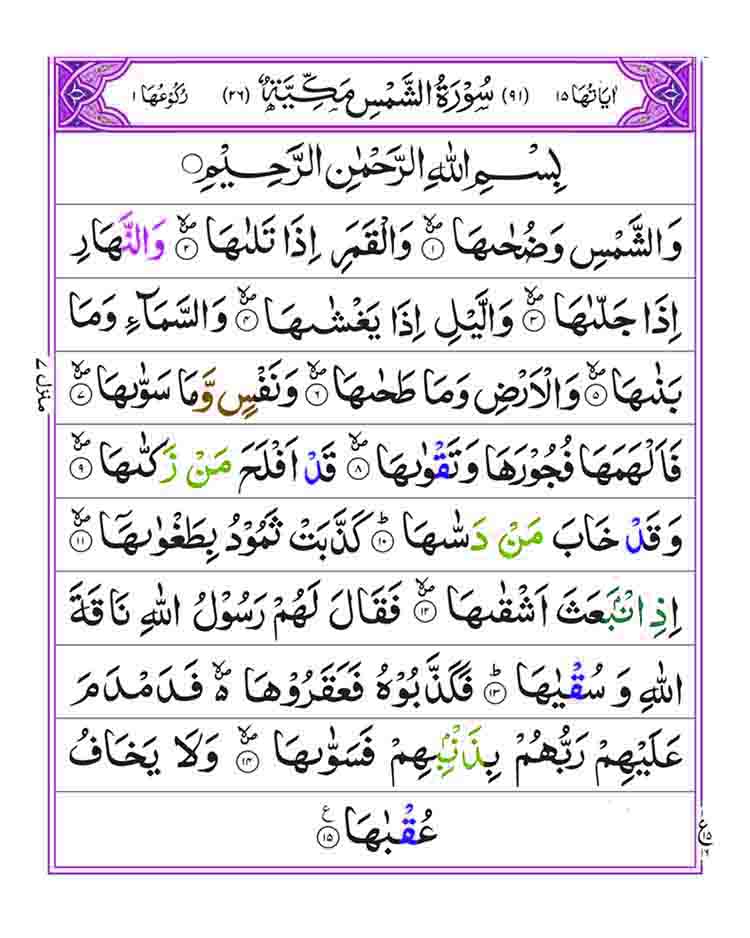 اٰيَاتُهَا ١٥ (٩١) سُوْرَةُ الشَّمْسِ مَكِّيَّةٌ (٢٦) رُكُوْعُهَا ١
بِسْمِ اللّٰهِ الرَّحْمٰنِ الرَّحِيْمِ ○
وَالشَّمْسِ وَضُحٰىهَا ۙ﴿١﴾ وَالْقَمَرِ اِذَا تَلٰىهَا ۙ﴿٢﴾ وَالنَّهَارِ
اِذَا جَلّٰىهَا ۙ﴿٣﴾ وَالَّيْلِ اِذَا يَغْشٰىهَا ۙ﴿٤﴾ وَالسَّمَآءِ وَمَا
بَنٰىهَا ۙ﴿٥﴾ وَالْاَرْضِ وَمَا طَحٰىهَا ۙ﴿٦﴾ وَنَفْسٍ وَّمَا سَوّٰىهَا ۙ﴿٧﴾
فَاَلْهَمَهَا فُجُوْرَهَا وَتَقْوٰىهَا ۙ﴿٨﴾ قَدْ اَفْلَحَ مَنْ زَكّٰىهَا ۙ﴿٩﴾
وَقَدْ خَابَ مَنْ دَسّٰىهَا ؕ﴿١٠﴾ كَذَّبَتْ ثَمُوْدُ بِطَغْوٰىهَاۤ ۙ﴿١١﴾
اِذِ انْۢبَعَثَ اَشْقٰىهَا ۙ﴿١٢﴾ فَقَالَ لَهُمْ رَسُوْلُ اللّٰهِ نَاقَةَ
اللّٰهِ وَسُقْيٰهَا ؕ﴿١٣﴾ فَكَذَّبُوْهُ فَعَقَرُوْهَا ۙ۬ فَدَمْدَمَ
عَلَيْهِمْ رَبُّهُمْ بِذَنْۢبِهِمْ فَسَوّٰىهَا ۙ﴿١٤﴾ وَلَا يَخَافُ
عُقْبٰهَا ﴿١٥﴾ ع
منزل ٧
ع ١٥ ١٦